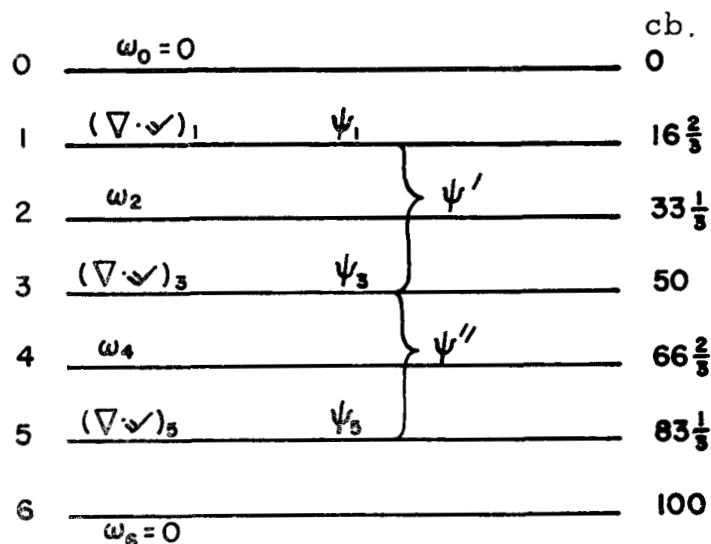 cb.
0 ω₀ = 0 0
1 (∇·𝐕)₁ ψ₁ 16⅔
2 ω₂ ψ′ 33⅓
3 (∇·𝐕)₃ ψ₃ 50
4 ω₄ ψ″ 66⅔
5 (∇·𝐕)₅ ψ₅ 83⅓
6 100
ω₆ = 0